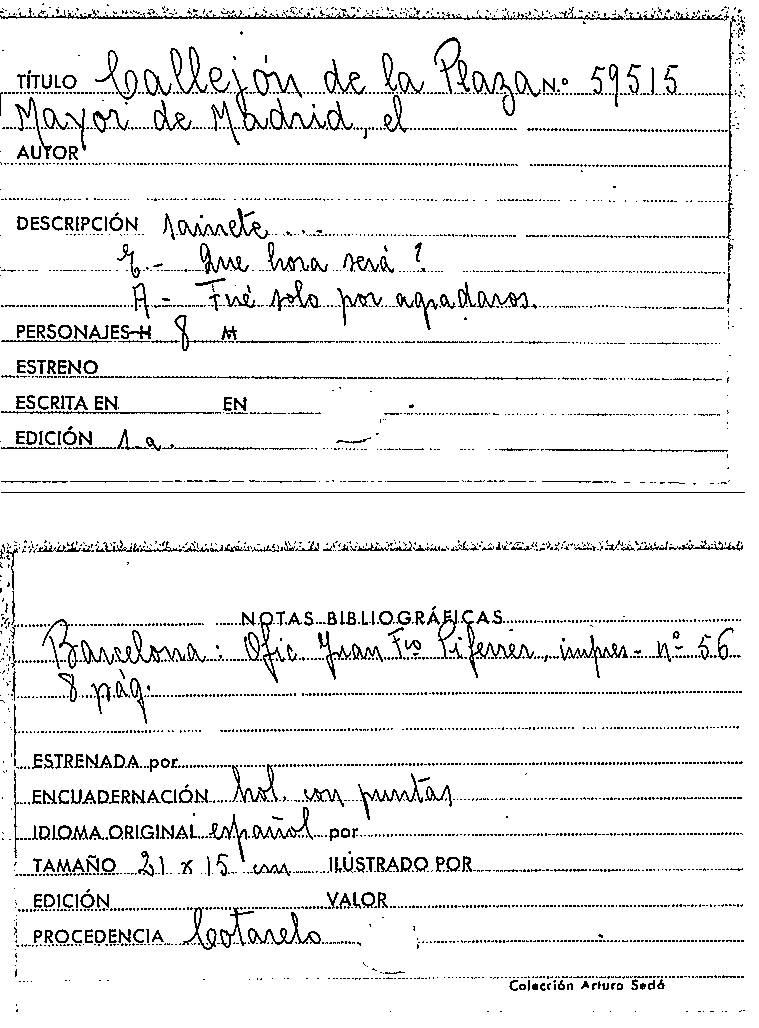 TÍTULO Callejón de la Plaza N.º 59515
Mayor de Madrid, el
AUTOR
DESCRIPCIÓN sainete ...
E.- Que hora será?
A - Fué solo por agradaros.
PERSONAJES H 8 M
ESTRENO
ESCRITA EN EN
EDICIÓN 1.a.
NOTAS BIBLIOGRÁFICAS
Barcelona: Ofic. Juan Fco Piferrer, impres- nº 56
8 pág.
ESTRENADA por
ENCUADERNACIÓN hol. con puntas
IDIOMA ORIGINAL español por
TAMAÑO 21 x 15 cm ILUSTRADO POR
EDICIÓN VALOR
PROCEDENCIA Cotarelo
Colección Arturo Sedó